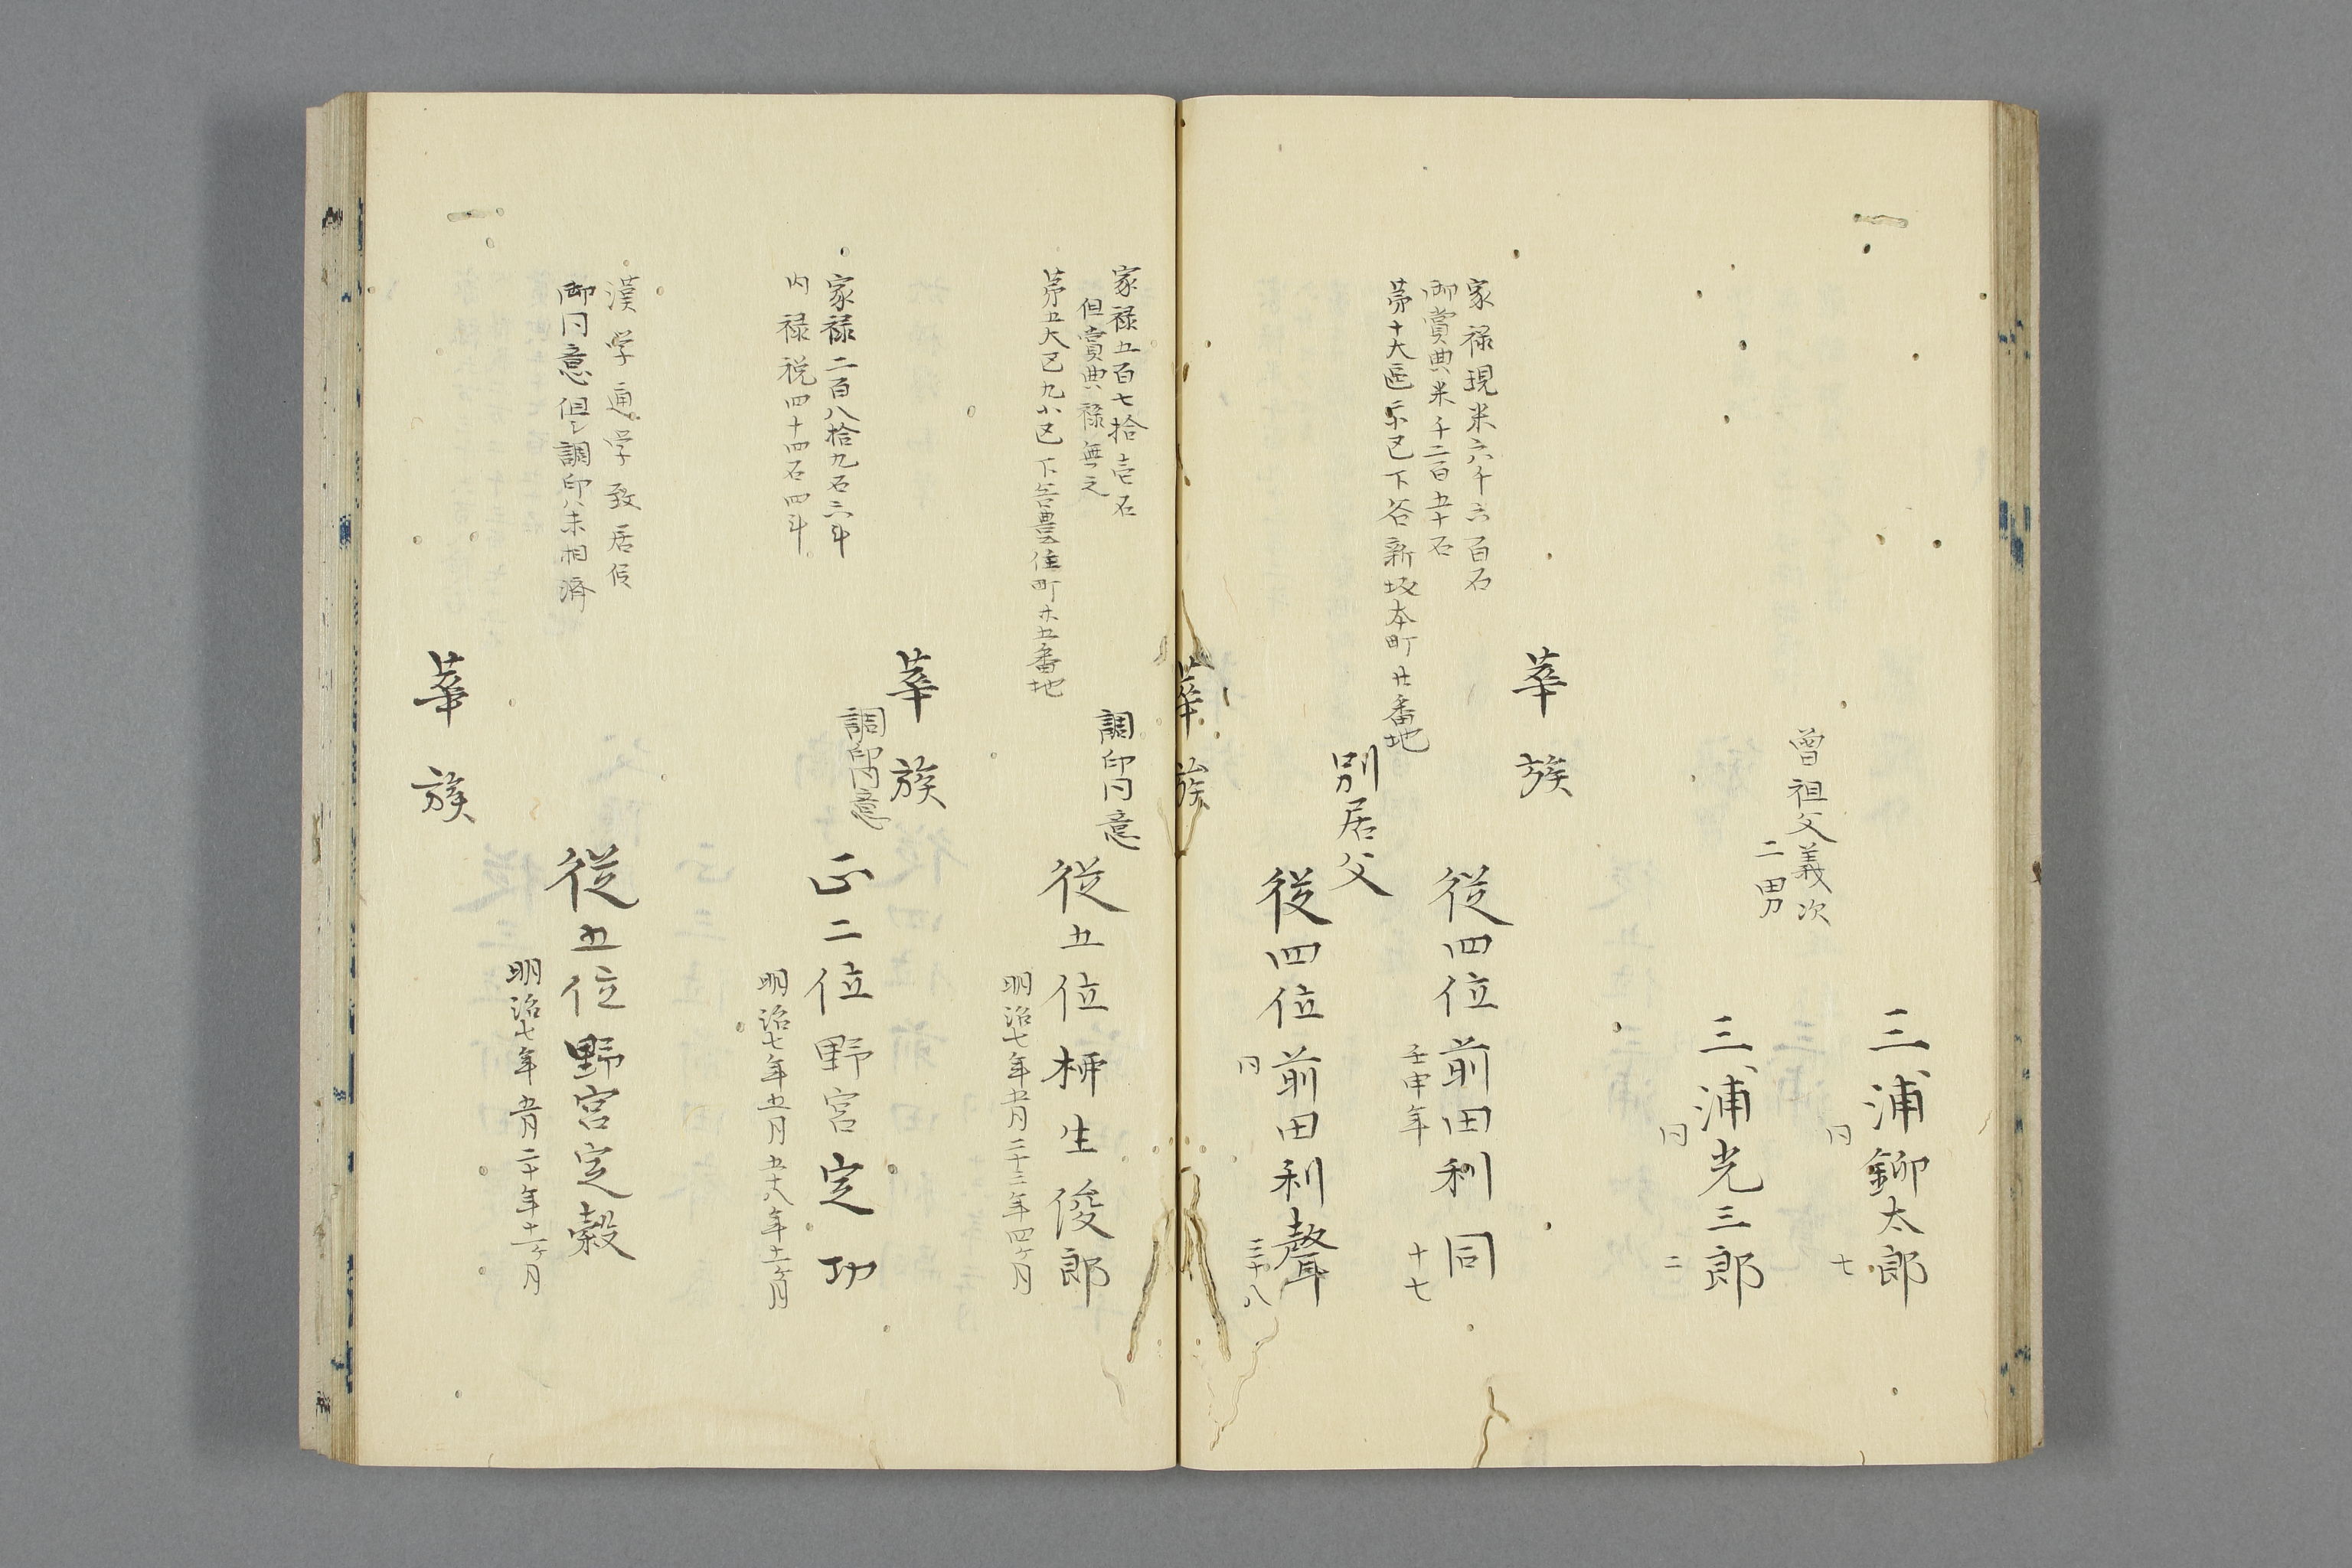 三浦鉚太郎
同 七
曾祖父義次
二男
三浦光三郎
同 二
華族
家禄現米六千六百石
御賞典米千二百五十石
第十大區小区下谷新坂本町廿番地
従四位前田利同
壬申年 十七
別居父
従四位前田利聲
同 三十八
華族
家禄五百七拾壱石
但賞典禄無之
第五大区九小区下谷豊住町廿五番地
調印同意
従五位桺生俊郎
明治七年五月二十三年四ヶ月
華族
家禄二百八拾九石三斗
内禄税四十四石四斗
調印同意
正二位野宮定功
明治七年五月五十八年十一ヶ月
漢学通学致居候
御同意但シ調印ハ未相済
従五位野宮定穀
明治七年五月二十年十一ヶ月
華族